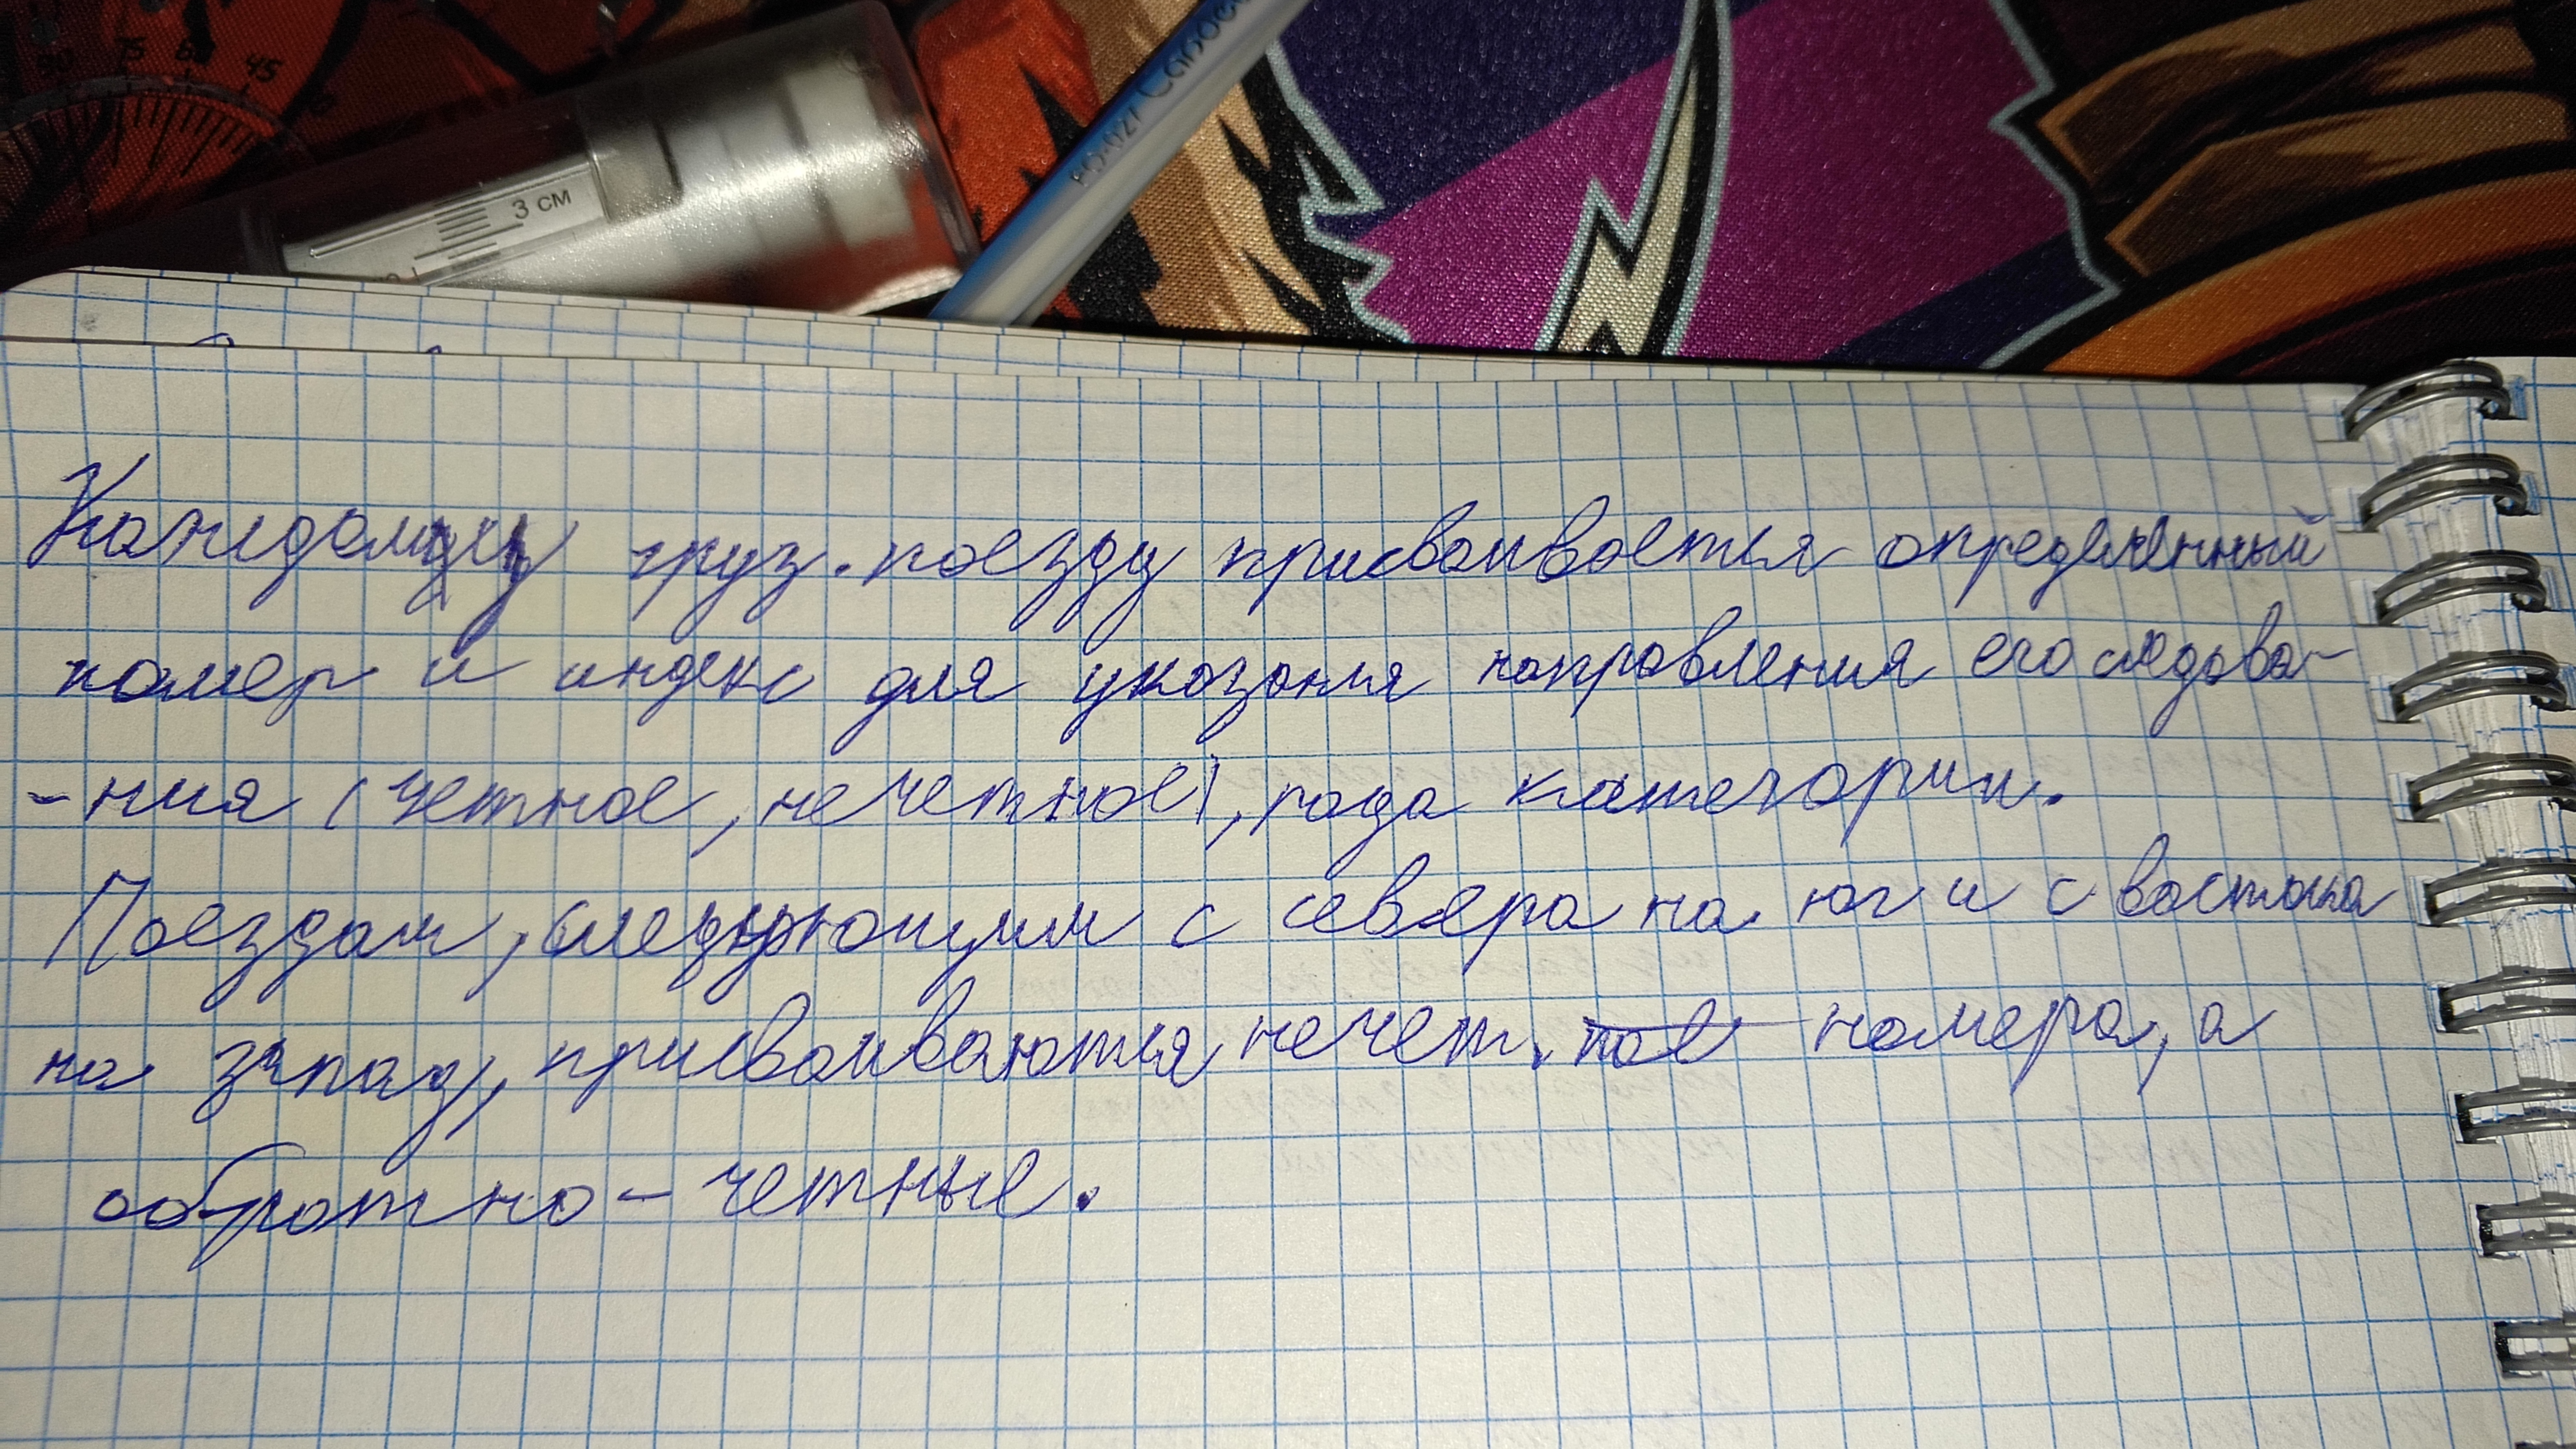 75 60 45
3 см
РО-027 Cando
Каждому груз. поезду присваивается определенный
номер и индекс для указания направления его следова-
-ния (четное, нечетное), рода категории.
Поездам, следующим с севера на юг и с востока
на запад, присваиваются нечет. ное номера, а
обратно - четные.